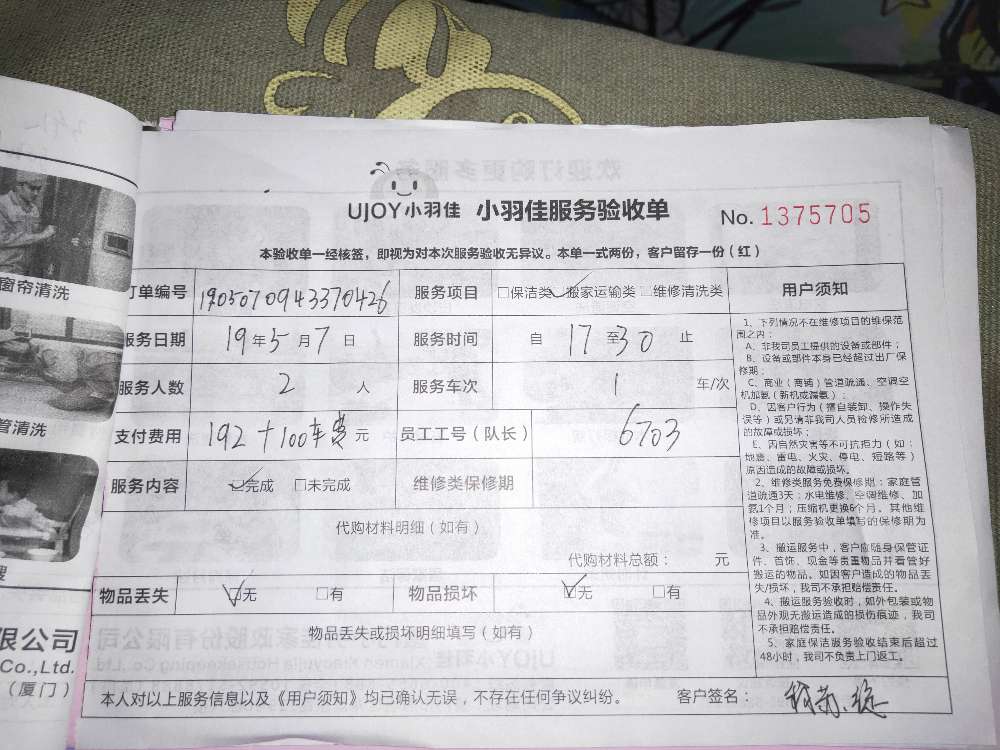 UJOY小羽佳 小羽佳服务验收单 No. 1375705
本验收单一经核签，即视为对本次服务验收无异议。本单一式两份，客户留存一份（红）
订单编号 1905070943370426 服务项目 □保洁类 ✓搬家运输类 □维修清洗类
服务日期 19年5月7日 服务时间 自 17 至 30 止
服务人数 2 人 服务车次 1 车/次
支付费用 192+100车费 元 员工工号（队长） 6703
服务内容 ☑完成 □未完成 维修类保修期
代购材料明细（如有）
代购材料总额： 元
物品丢失 ☑无 □有 物品损坏 ☑无 □有
物品丢失或损坏明细填写（如有）
本人对以上服务信息以及《用户须知》均已确认无误，不存在任何争议纠纷。 客户签名：
用户须知
1、下列情况不在维修项目的维保范
围之内：
A、非我司员工提供的设备或部件；
B、设备或部件本身已经超过出厂保
修期；
C、商业（商铺）管道疏通、空调空
机加氨（新机或漏氨）；
D、因客户行为（擅自装卸、操作失
误等）或另请非我司人员检修所造成
的故障或损坏；
E、因自然灾害等不可抗拒力（如：
地震、雷电、火灾、停电、短路等）
原因造成的故障或损坏。
2、维修类服务免费保修期：家庭管
道疏通3天；水电维修、空调维修、加
氨1个月；压缩机更换6个月。其他维
修项目以服务验收单填写的保修期为
准。
3、搬运服务中，客户应随身保管证
件、首饰、现金等贵重物品并看管好
搬运的物品。如因客户造成的物品丢
失/损坏，我司不承担赔偿责任。
4、搬运服务验收时，如外包装或物
品外观无搬运造成的损伤痕迹，我司
不承担赔偿责任。
5、家庭保洁服务验收结束后超过
48小时，我司不负责上门返工。
窗帘清洗
管清洗
限公司
Co.,Ltd.
（厦门）